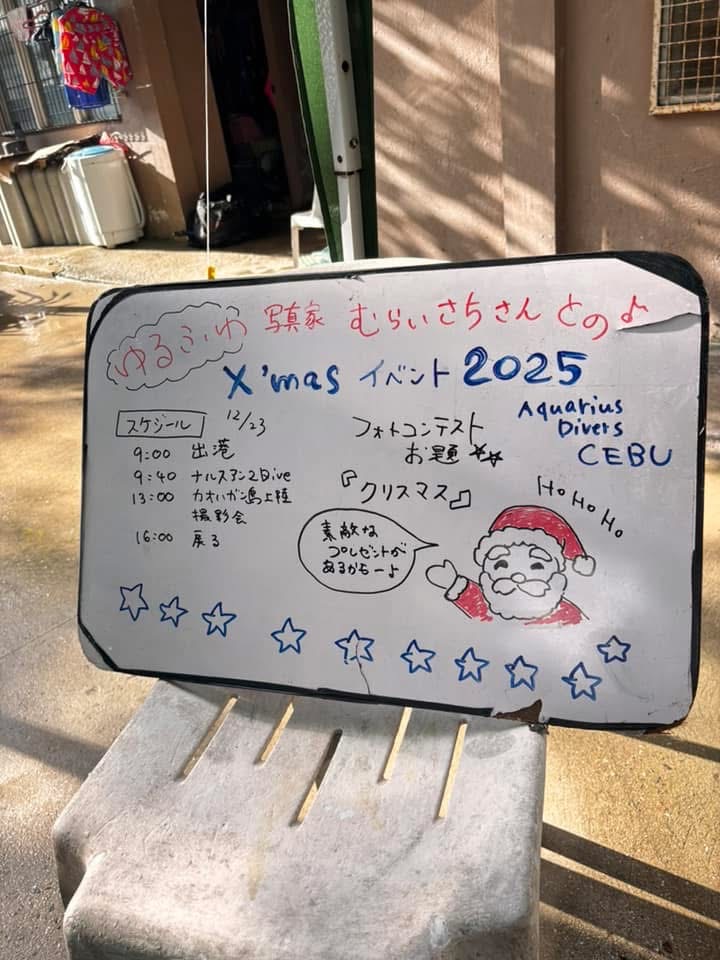 ゆるふわ 写真家 むらいさちさんとの♪
X'mas イベント 2025
Aquarius
Divers
CEBU
スケジール 12/23
9:00 出港
9:40 ナルスアン2Dive
13:00 カオハガン島上陸
撮影会
16:00 戻る
フォトコンテスト
お題 ☆☆
『クリスマス』
HoHoHo
素敵な
プレゼントが
あるかもーよ